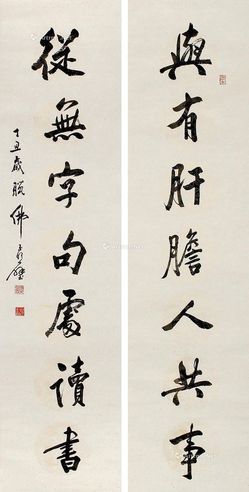 與有肝膽人共事
從無字句處讀書
丁丑歲臘